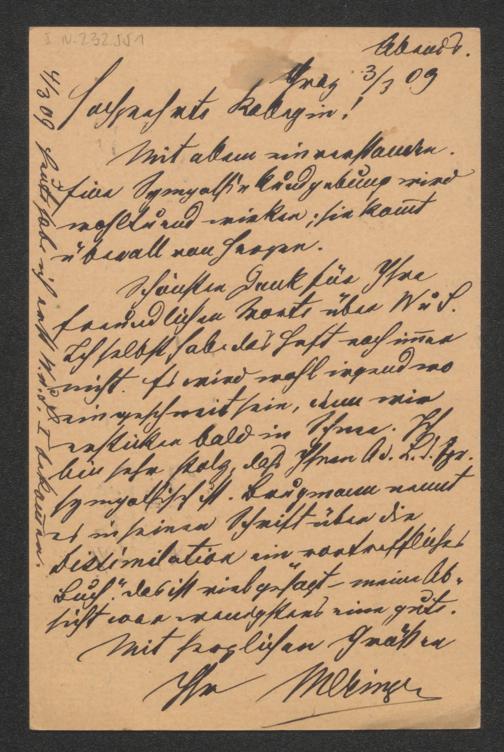 I. N. 232.551
Abends.
Graz 3/3 09
Hochverehrte Kollegin!
Mit allem einverstanden.
Eine Sympathiekundgebung wird
wohltuend wirken; sie kommt
überall von Herzen.
Schönsten Dank für Ihre
freundlichen Worte über W u S.
Ich selbst habe das Heft noch immer
nicht. Es wird wohl irgendwo
eingeschneit sein, denn wir
ersticken bald in Schnee. Ich
bin sehr stolz, daß Ihnen A. d. L. d. Spr.
sympathisch ist. Brugmann nennt
es in seiner Schrift über die
Dissimilation ein vortreffliches
Buch". Das ist viel gesagt – meine Ab-
sicht war wenigstens eine gute.
Mit herzlichen Grüßen
Ihr Meringer
4/3 09 Heute habe ich erst W. u. S. I bekommen.